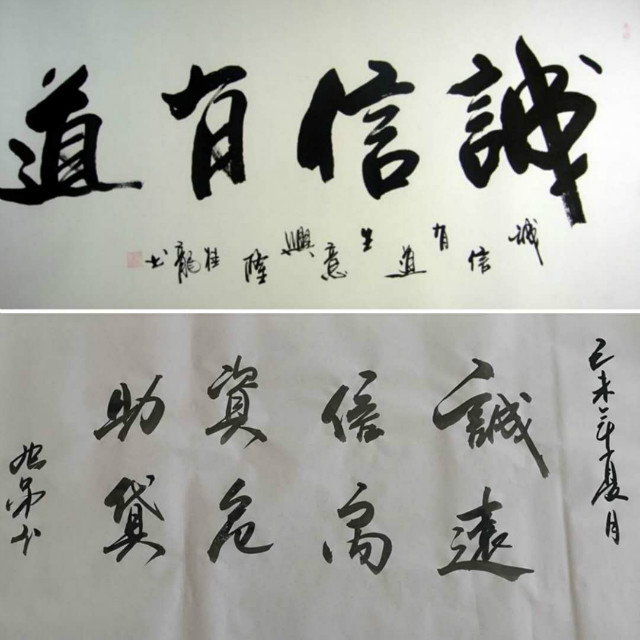 誠信有道
誠信有道生意興隆桂龍书
己未年夏月
誠信資助
遠高危貸